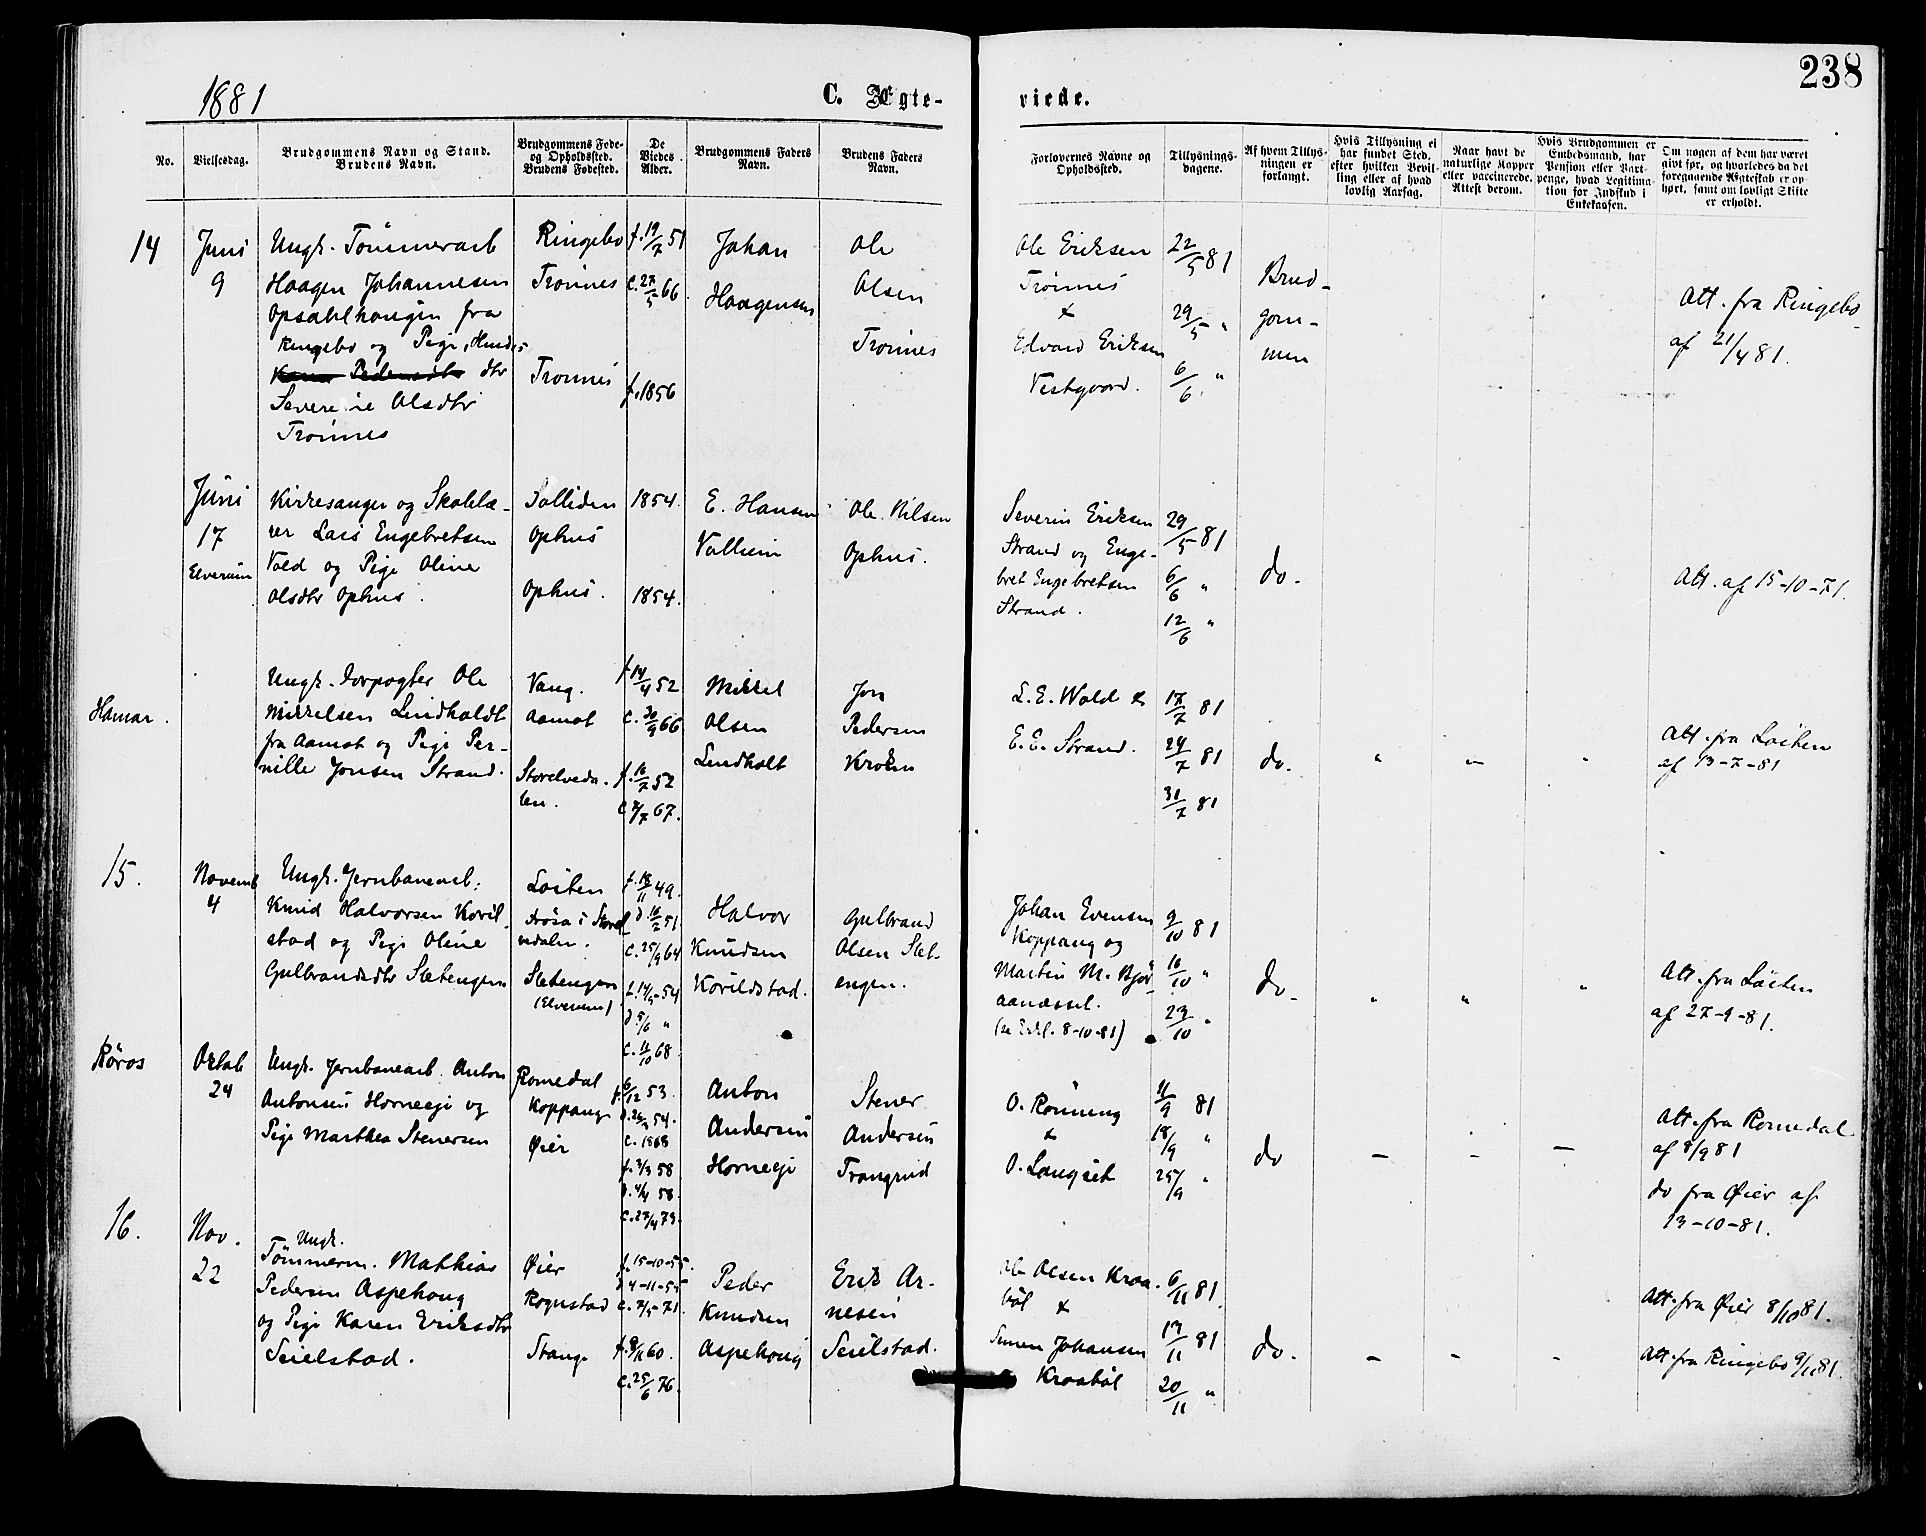 238
1881
C. Ægte-
viede.
No.
Vielsesdag.
Brudgommens Navn og Stand.
Brudens Navn.
Brudgommens Føde-
og Opholdssted.
Brudens Fødested.
De
Viedes
Alder.
Brudgommens Faders
Navn.
Brudens Faders
Navn.
Forlovernes Navne og
Opholdssted.
Tillysnings-
dagene.
Af hvem Tillys-
ningen er
forlangt.
Hvis Tillysning ei
har fundet Sted,
efter hvilken Bevil-
ling eller af hvad
lovlig Aarsag.
Naar havt de
naturlige Kopper
eller vaccinerede.
Attest derom.
Hvis Brudgommen er
Embedsmand, har
Pension eller Vart-
penge, hvad Legitima-
tion for Indskud i
Enkekassen.
Om nogen af dem har været
gift før, og hvorledes da det
foregaaende Ægteskab er op-
hørt, samt om lovligt Skifte
er erholdt.
14
Juni
9
Ungk. Tømmerarb
Haagen Johannesen
Opsahlhougin fra
Ringebo og Pige,
dtr
Severine Olsdtr
Trønnes
Ringebo
Trønnes
Trønnes
f. 19/7 51
c. 27/5 66.
f. 1856
Johan
Haagensen
Ole
Olsen
Trønnes
Ole Eriksen
Trønnes
&
Edvard Eriksen
Vestgaard.
22/5 81
29/5 "
6/6 "
Brud-
gom-
men
Att. fra Ringebo
af 21/4 81.
Juni
17
Elverum
Kirkesanger og Skolelæ-
rer Lars Engebretsen
Vold og Pige Oline
Olsdtr Ophus.
Solliden
Ophus
Ophus.
1854.
1854.
E. Hansen
Ole Nilsen
Ophus.
Severin Eriksen
Strand og Enge-
bret Engebretsen
Strand.
29/5 81
6/6 "
12/6 "
do.
Att. af 15-10-71.
Hamar.
Ungk. Forpagter Ole
Mikkelsen Lindholdt
fra Aamot og Pige Per-
nille Jonsen Strand.
Vang.
Aamot
Storelveda-
len.
f. 14/4 52
c. 30/9 66
f. 16/7 52
c. 7/7 67.
Mikkel
Olsen
Lindholt
Jon
Pedersen
Kroken
L. E. Wold &
E. E. Strand.
17/7 81
24/7 81
31/7 81
do.
"
"
"
Att. fra Løiten
af 13-7-81
15.
Novemb
4
Ungk. Jernbanearb:
Knud Halvorsen Koril-
stad og Pige Oline
Gulbrandsdtr Sletengen
Løiten
i Storel-
vedalen.
Sletengen
(Elverum)
f. 18/11 49.
d. 16/2 51.
c. 25/9 64
f. 14/5-54
d. 5/6 "
c. 11/10 68
Halvor
Knudsen
Korildstad.
Gulbrand
Olsen Slet-
engen.
Johan Evensen
Koppang og
Martin M. Bjør-
aanæsset.
8-10-81)
9/10 81
16/10 "
23/10 "
do.
"
"
"
Att. fra Løiten
af 27-9-81.
Røros
Oktob
24
Ungk. Jernbanearb. Anton
Antonsen Horneeje og
Pige Marthea Stenersen
Romedal
Koppang
Øier
f. 6/12 53.
c. 1868
f. 3/3 58
d. 4/4 58.
c. 27/4 73.
Anton
Andersen
Horneeje
Stener
Andersen
Trangrud
O. Rønning
&
O. Langset
11/9 81
18/9 "
25/9 "
do
-
-
-
Att. fra Romedal
af 8/9 81
do fra Øier af
13-10-81.
16.
Nov.
22
Ungk.
Tømmerm. Mathias
Pedersen Aspehoug
og Pige Karen Eriksdtr
Seielstad.
Øier
Rognstad
Stange
f. 15-10-55.
d 4-11-55
c. 7/5-71.
f. 9/11 60.
c. 25/6 76.
Peder
Knudsen
Aspehoug
Erik Ar-
nesen
Seielstad.
Ole Olsen Kraa-
bøl &
Simen Johansen
Kraabøl
6/11 81
13/11 81
20/11 "
do.
-
-
-
Att. fra Øier 8/10 81.
Att. fra Ringebo 9/11 81.